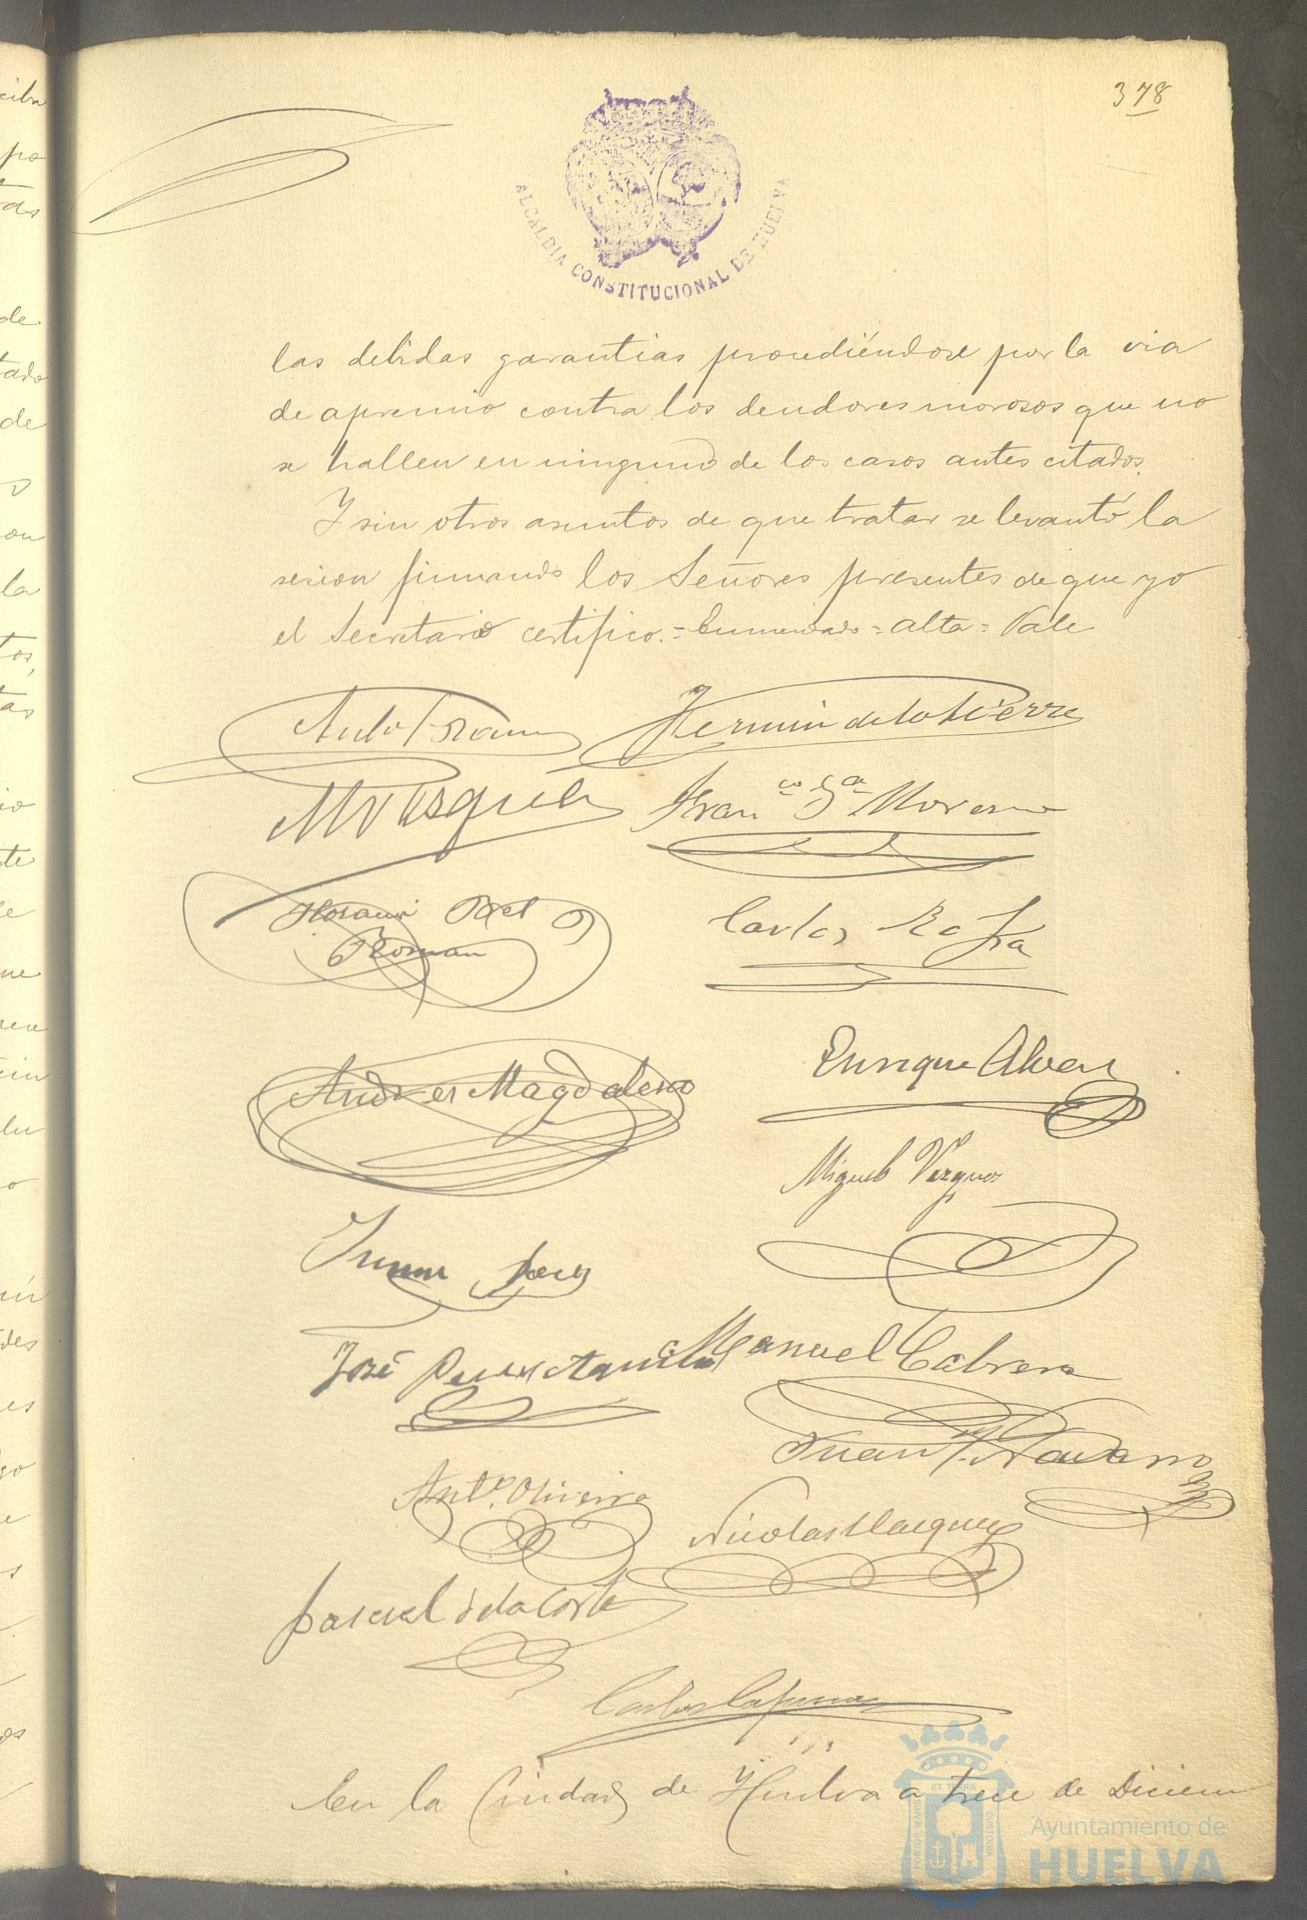 378
ALCALDIA CONSTITUCIONAL DE HUELVA
las debidas garantias procediéndose por la via
de apremio contra los deudores morosos que no
se hallen en ninguno de los casos antes citados.
Y sin otros asuntos de que tratar se levantó la
sesion firmando los Señores presentes de que yo
el Secretario certifico.=Enmendado=alta=Vale
Fermin de la Sierra
Franco Ga Moreno
Roman
Carlos
Andres Magdaleno
Enrique Alvarez
Miguel Vazquez
José Perez
Manuel Cabrera
Juan Navarro
Anto Oliveira
Nicolas Vazquez
Pascual de la Corte
Carlos
En la Ciudad de Huelva a trece de Diciem
PORTUS MARIS ET TERRÆ CUSTODIA
Ayuntamiento de
HUELVA